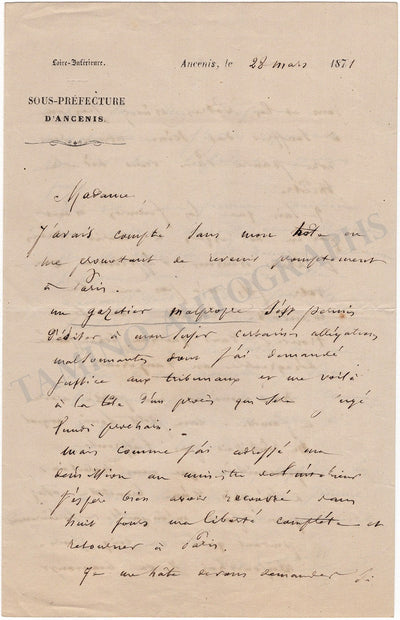 Loire-Inférieure.
Ancenis, le 28 mars 1871
SOUS-PRÉFECTURE
D'ANCENIS.
Madame
J'avais compté sans mon hôte en
me promettant de revenir promptement
à Paris.
un gazetier malpropre s'est permis
d'éditer à mon sujet certaines allégations
malsonnantes dont j'ai demandé
justice aux tribunaux et me voilà
à la tête d'un procès qui sera jugé
lundi prochain.
mais comme j'ai adressé ma
démission au ministre de l'intérieur
j'espère bien avoir recouvré dans
huit jours ma liberté complète et
retourner à Paris.
Je me hâte de vous demander si
TAMINO AUTOGRAPHS